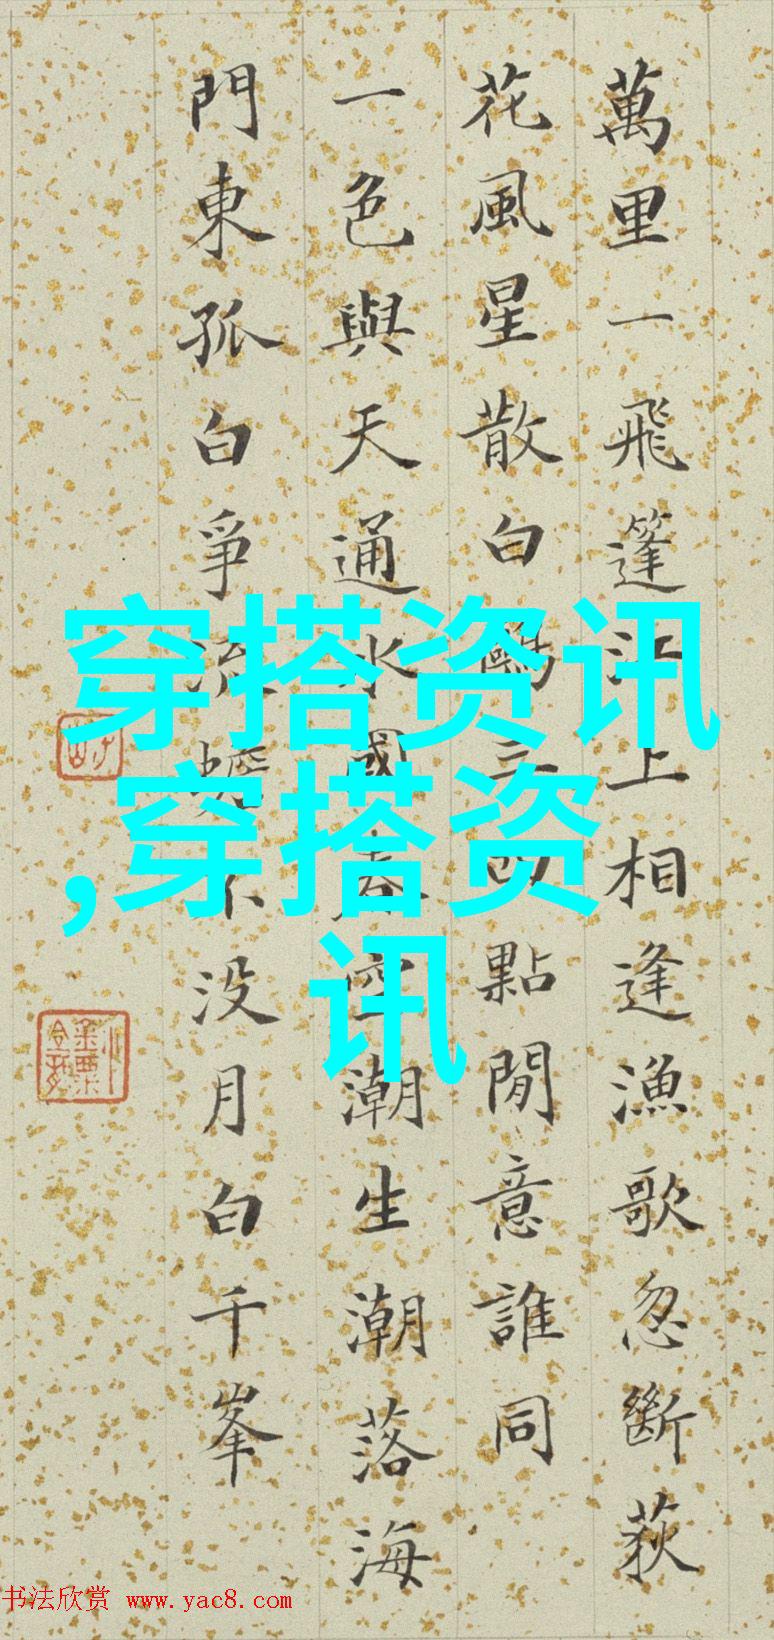 萬里一飛篷江上相逢漁歌忽斷荻
花風星散白鷗點閒意誰同
一色與天通水國春空潮生潮落海
門東孤白爭流不没月白千峯
穿搭资讯
,穿搭资
讯
书法欣赏 www.yac8.com